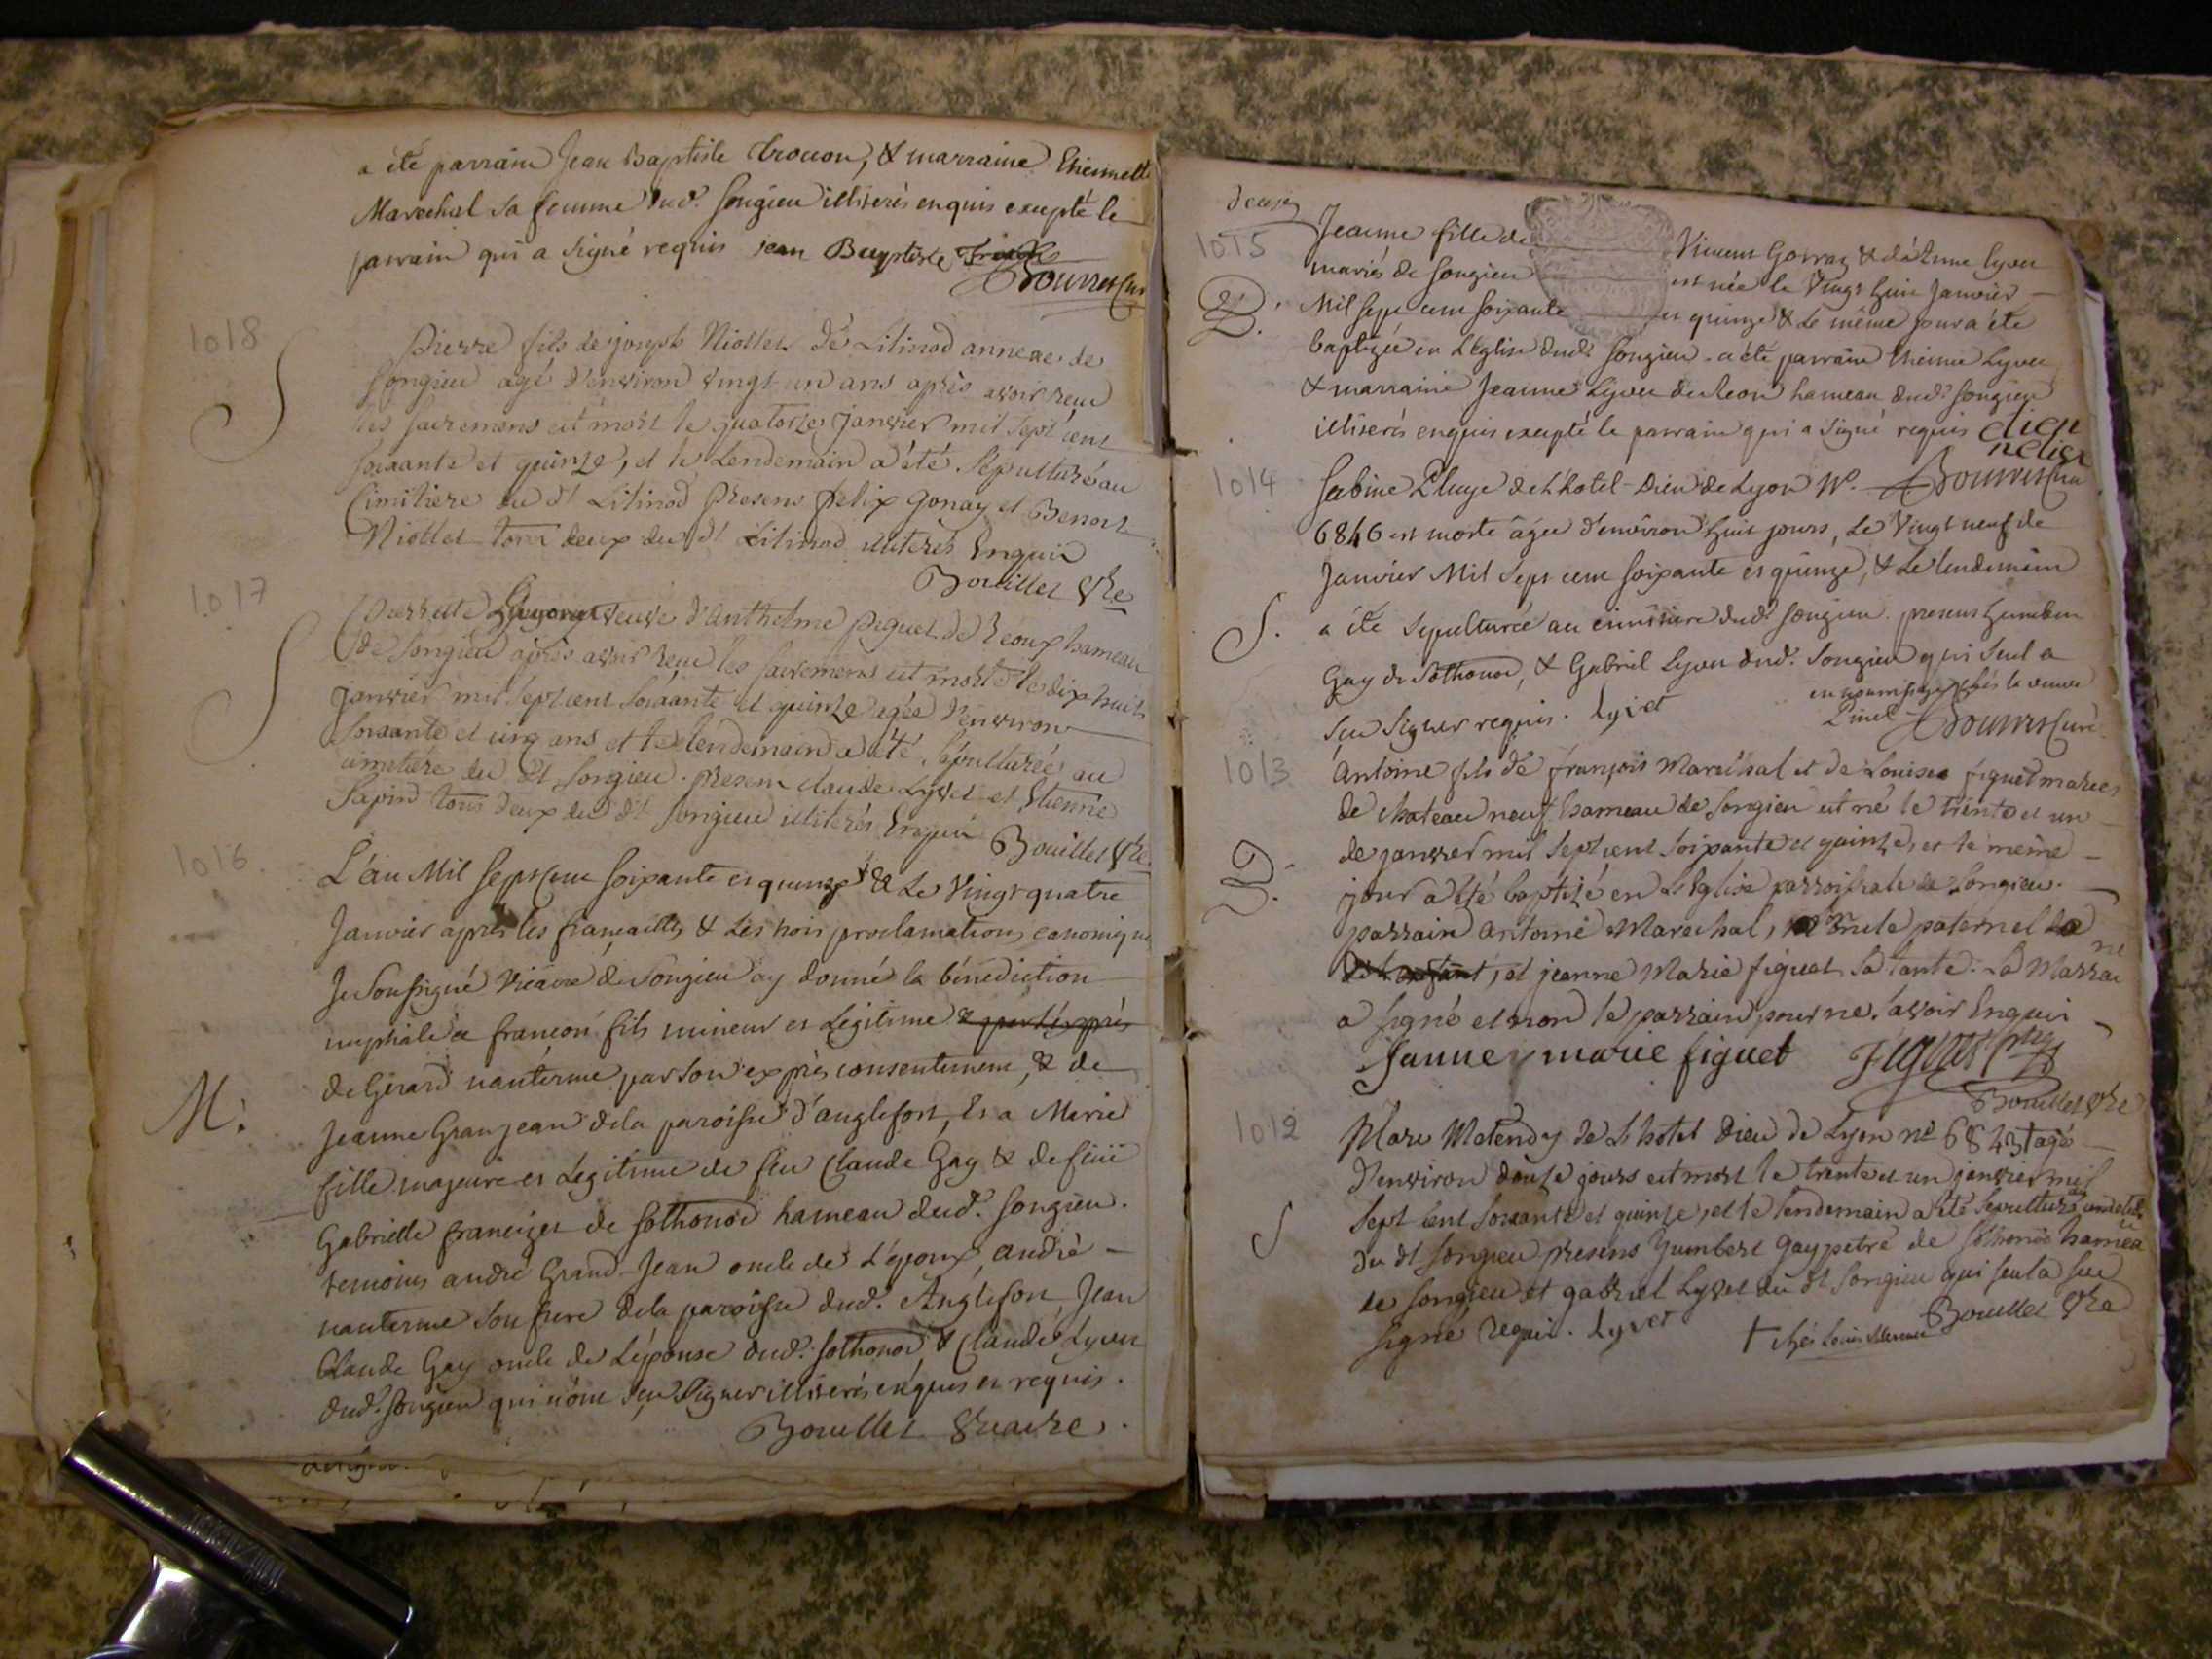 a été parrain Jean Baptiste trocon, & marraine Ehiennette
Marechal sa femme dud. Songieu illiterés enquis excepté le
parrain qui a signé requis jean Baptiste
1018
S
Pierre fils de joseph Niollet de Lilinod annexe de
Songieu agé d'environ vingt-un ans après avoir reçu
les sacremens est mort le quatorze janvier mil sept cent
soixante et quinze, et le Lendemain a été sépulturé au
Cimitiere du dt Lilinod presens felix gonay et Benoit
Niollet tous deux du dt Lilinod illiterés Enquis
Bouillet Vre
1017
S
Pierrette veuve d'anthelme piguet de hameau
de Songieu après avoir reçu les sacremens est morte le dix huit
janvier mil sept cent soixante et quinze agée d'environ
soixante et cinq ans et le lendemain a été sépulturée au
cimetiere du dt Songieu. presens claude Lyvet et Etienne
Sapin tous deux du dt Songieu illiterés Enquis
Bouillet Vre
1016
L'an Mil Sept cent soixante et quinze & Le Vingt quatre
Janvier après les fiançailles & les trois proclamations canoniques
Je soussigné Vicaire de Songieu ay donné la bénédiction
nuptiale a françois fils mineur et Légitime
de Gérard nanterme par son exprès consentement, & de
M.
Jeanne Granjean de la paroisse d'anglefort, et a Marie
fille majeure et Légitime de feu Claude Gay & de feüe
Gabrielle de Sothonod hameau dud. Songieu.
temoins andré Grand-Jean oncle de L'époux, andré
nanterme son frere de la paroisse dud. Anglefort, Jean
Claude Gay oncle de L'épouse dud. Sothonod, & Claude Lyvet
dud. Songieu qui n'ont sçu signer illiterés enquis et requis.
Bouillet Vicaire.
1015
Jeanne fille de Vincent Gorraz & d'Anne Lyvet
mariés de Songieu est née le Vingt huit Janvier
B.
Mil sept cent soixante et quinze & Le même jour a été
baptizée en L'église dudt Songieu. a été parrain Ehienne Lyvet
& marraine Jeanne Lyvet hameau dud. Songieu
illiterés enquis excepté le parrain qui a signé requis
1014
Sabine de L'hotel-Dieu de Lyon No.
6846 est morte âgée d'environ huit jours, Le Vingt neuf de
Janvier Mil Sept cent soixante et quinze, & Le lendemain
S.
a été sepulturée au cimitiere dud. Songieu. presens humbert
Gay de Sothonod, & Gabriel Lyvet dud. Songieu qui seul a
sçu signer requis. lyvet
en nourrissage chés la veuve
Pinel
1013
antoine fils de françois Marechal et de Louise figuet mariés
de chateau neuf hameau de Songieu est né le trente et un
de janvier mil sept cent soixante et quinze, et le même
B.
jour a été baptizé en L'Eglise parroissiale de Songieu.
parrain antoine Marechal, oncle paternel
et jeanne Marie figuet sa tante. La Marraine
a signé et non le parrain pour ne savoir Enquis
Jeanne marie figuet
Bouillet Vre
1012
Marc Metendy de L'hotel Dieu de Lyon no 6843 † agé
d'environ douze jours est mort le trente et un janvier mil
S
sept cent soixante et quinze, et le lendemain a été sepulturé
du dt Songieu presens humbert gay de sothonod hameau
de Songieu et gabriel Lyvet du dt Songieu qui seul a sçu
signé requis. lyvet
Bouillet Vre
† chés